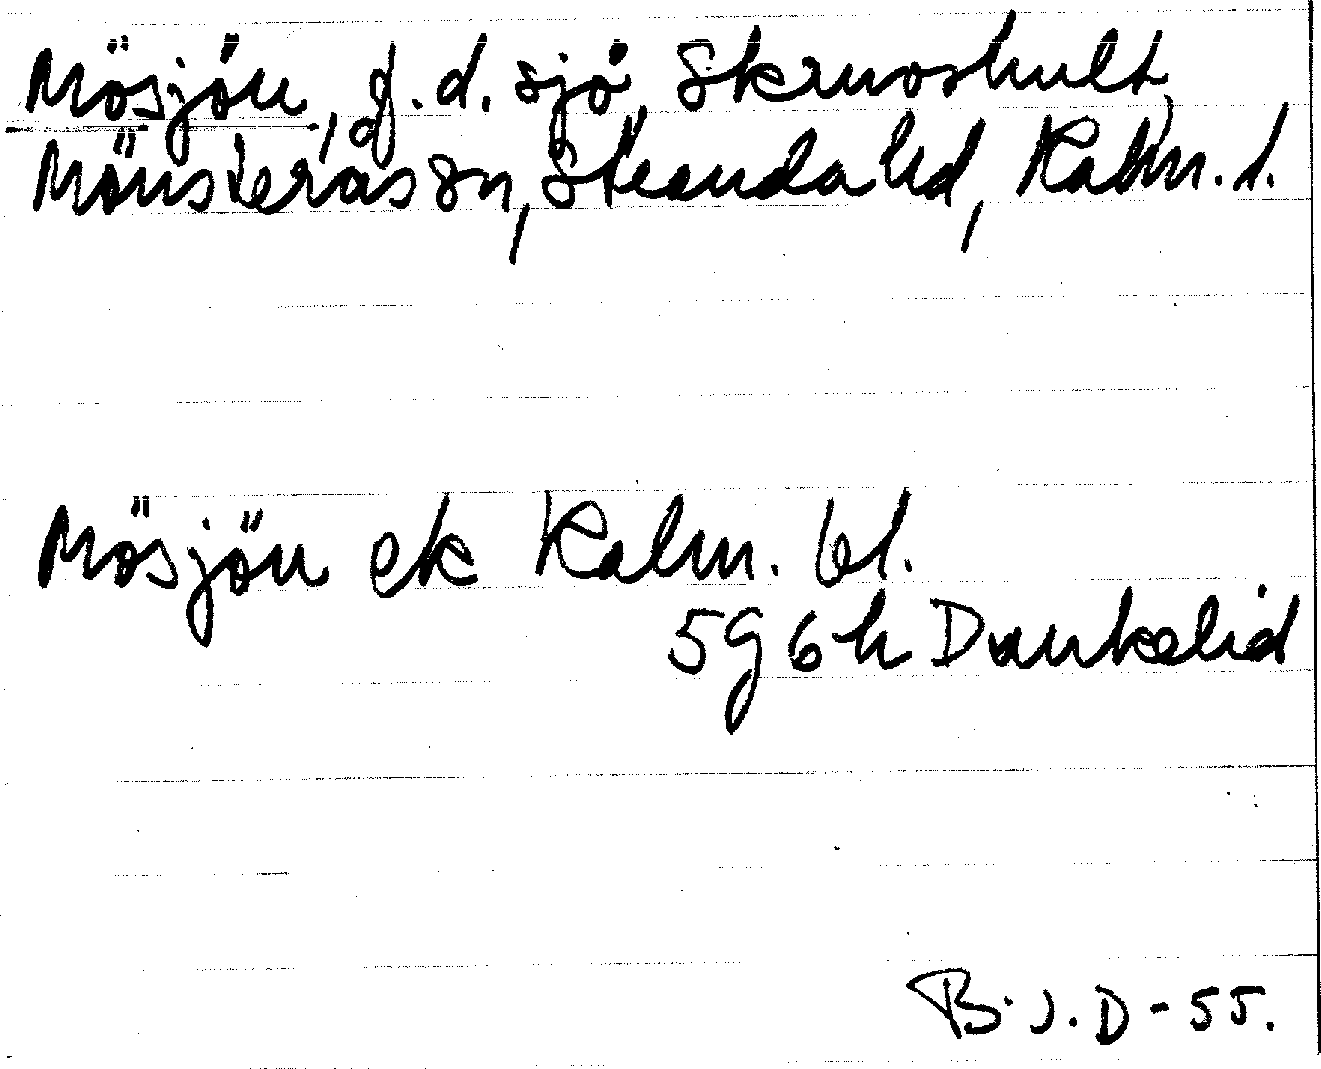 Mösjön, f. d. sjö, Skruvshult,
Mönsterås sn, Stranda hd, Kalm. l.
Mösjön ek Kalm. bl.
5g6h Dunkelid
B. J. D-55.